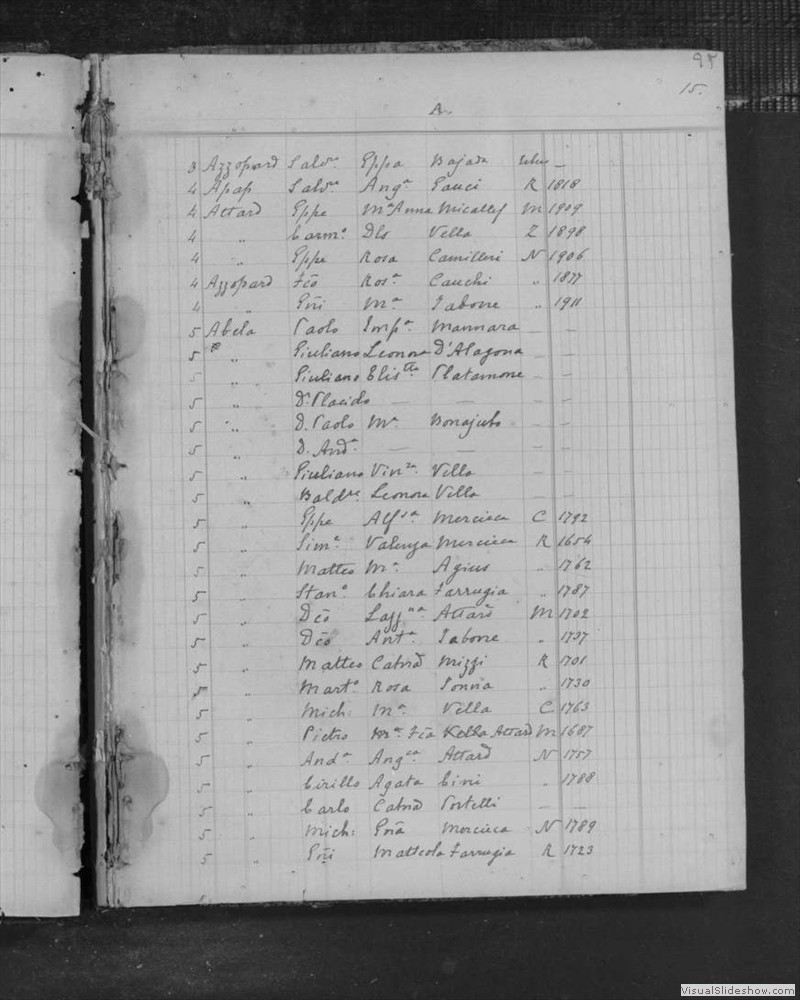 95
15.
A.
3 Azzopard Salvre Eppa Bajada
4 Apap Salvre Anga Gauci R 1818
4 Attard Eppe Ma Anna Micallef M 1909
4 " Carmo Dls Vella Z 1898
4 " Eppe Rosa Camilleri N 1906
4 Azzopard Fco Rosa Cauchi " 1877
4 " Gñi Ma Tabone " 1911
5 Abela Paolo Impa Mannara — —
5 " Giuliano Leonora D'Alagona — —
5 " Giuliano Elistta Platamone — —
5 " Dn Placido — — — —
5 " D. Paolo Ma Bonajuto — —
5 " D. Anda — — — —
5 " Giuliano Vinza Vella — —
5 " Baldre Leonora Vella — —
5 " Eppe Alfsa Mercieca C 1792
5 " Sime Valenza Mercieca R 1654
5 " Matteo Ma Agius " 1762
5 " Stano Chiara Farrugia " 1787
5 " Dco Lazzna Attard M 1702
5 " Dco Anta Tabone " 1737
5 " Matteo Catnd Mizzi R 1701
5 " Marto Rosa " 1730
5 " Mich: Ma Vella C 1763
5 " Pietro Ma Fca Kella Attard M 1687
5 " Anda Angca Attard N 1757
5 " Cirillo Agata Cini " 1788
5 " Carlo Catnd Portelli — —
5 " Mich: Gña Mercieca N 1789
5 " Gñi Matteola Farrugia R 1723
VisualSlideshow.com